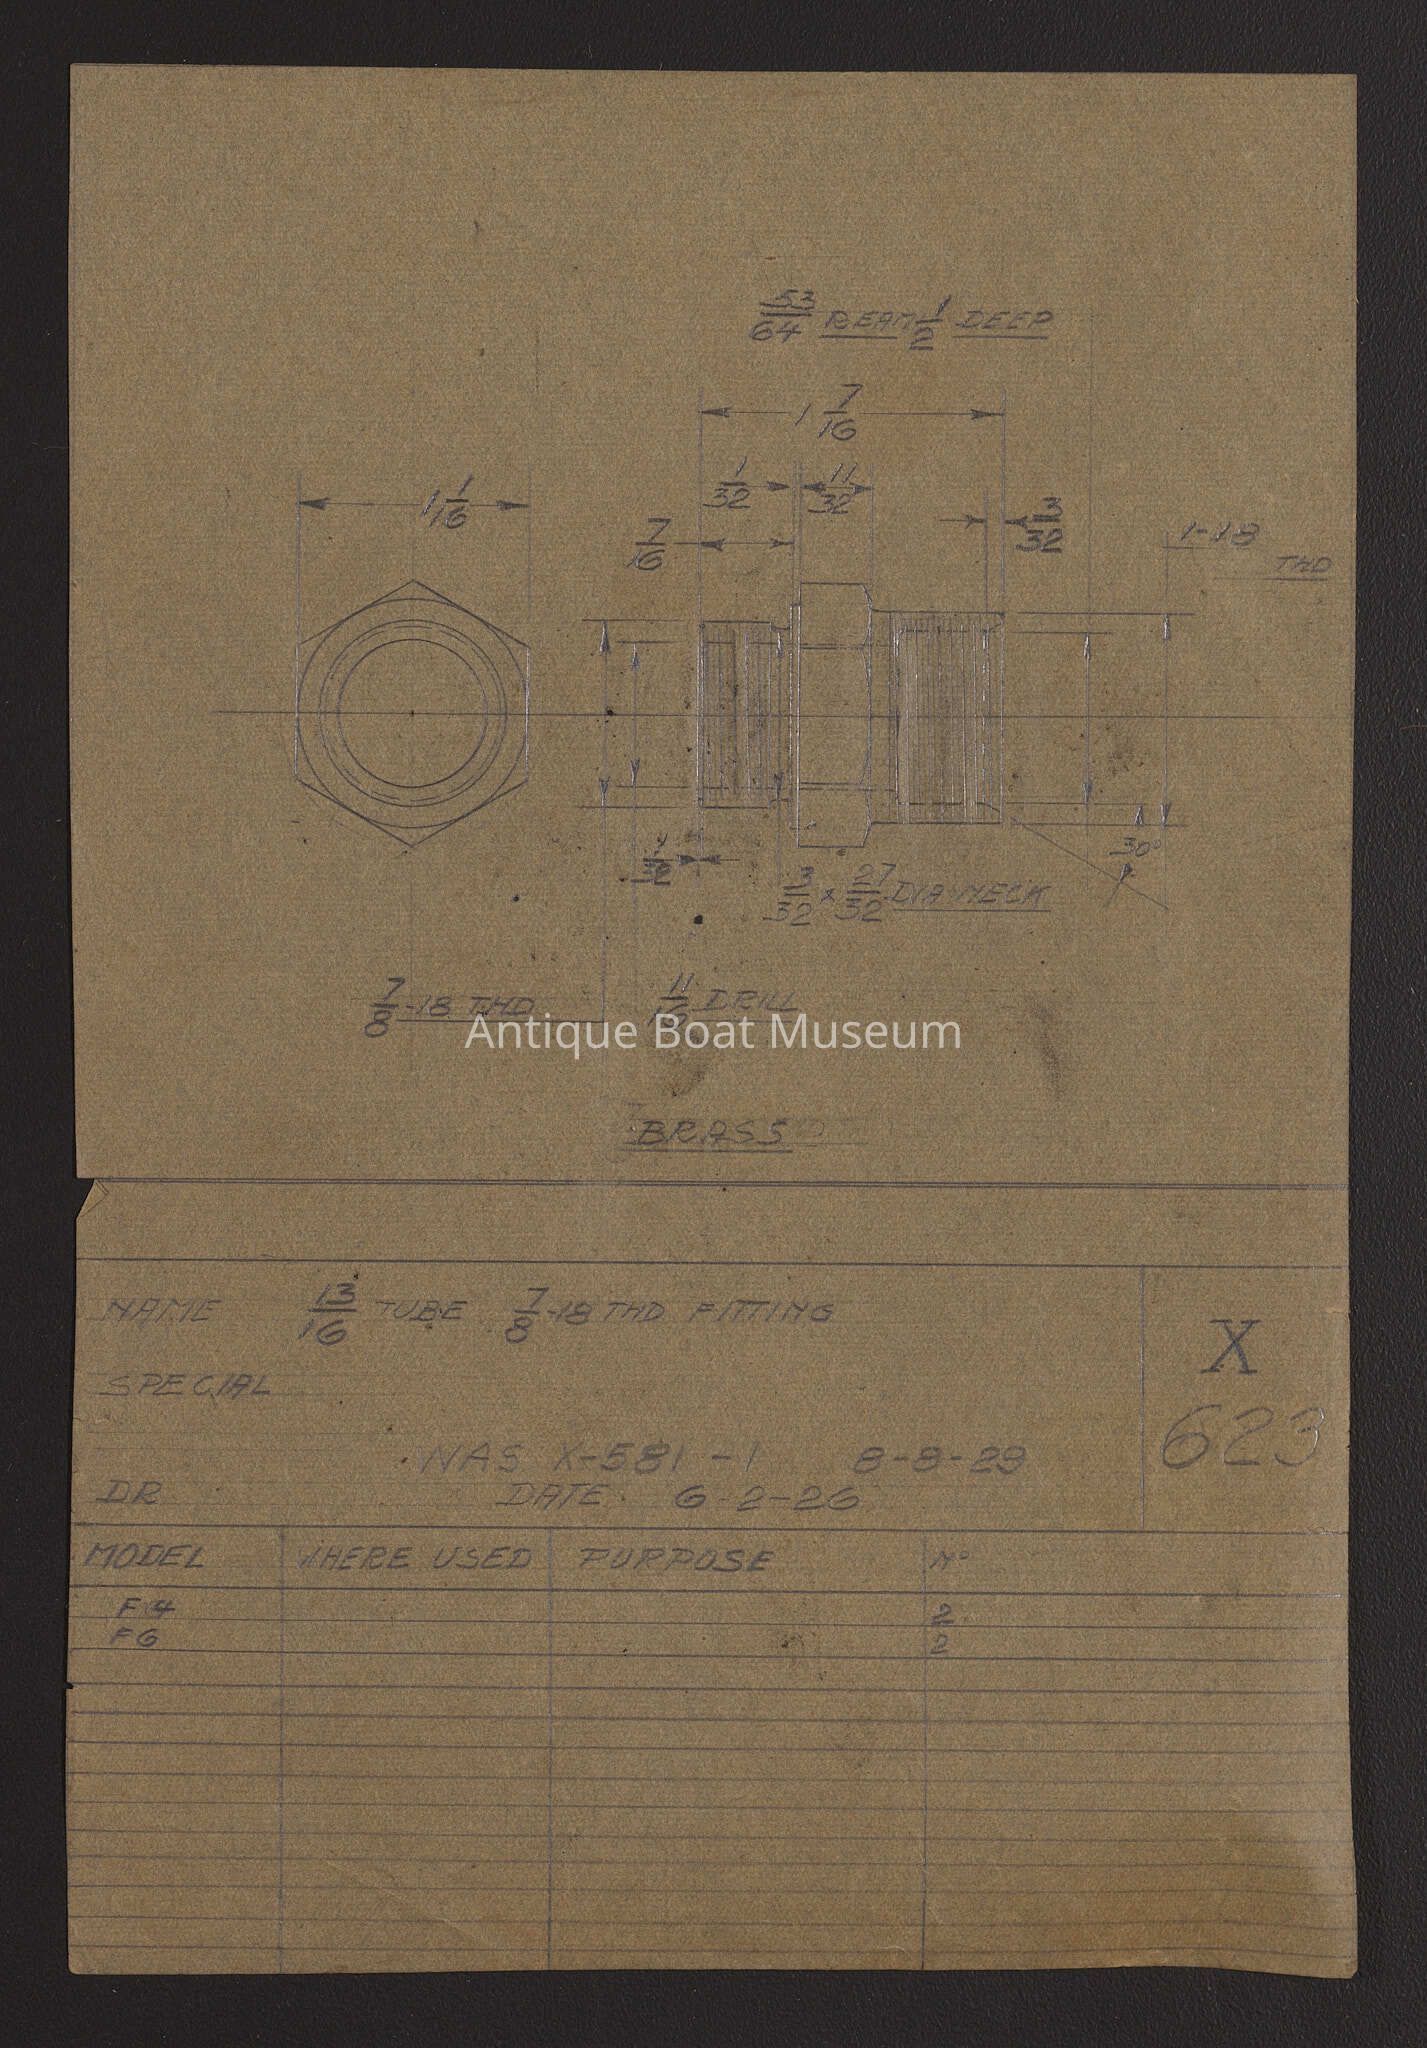 53/64 REAM 1/2 DEEP
1 7/16
1/32 11/32
1 1/16
7/16
3/32
1-18
THD
1/32
30°
3/32 x 27/32 DIA NECK
7/8-18 THD
11/16 DRILL
Antique Boat Museum
BRASS
NAME 13/16 TUBE 7/8-18 THD FITTING
X
623
SPECIAL
WAS X-581-1 8-8-29
DR DATE 6-2-26
MODEL WHERE USED PURPOSE No
F 4 2
F 6 2